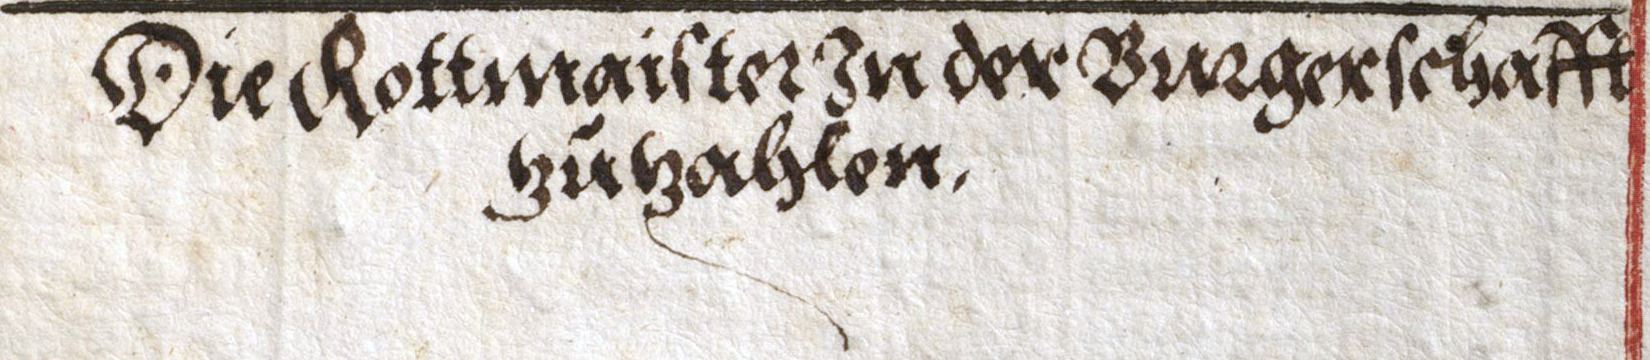 Die Rottmaister In der Burgerschafft
zu zahlen.